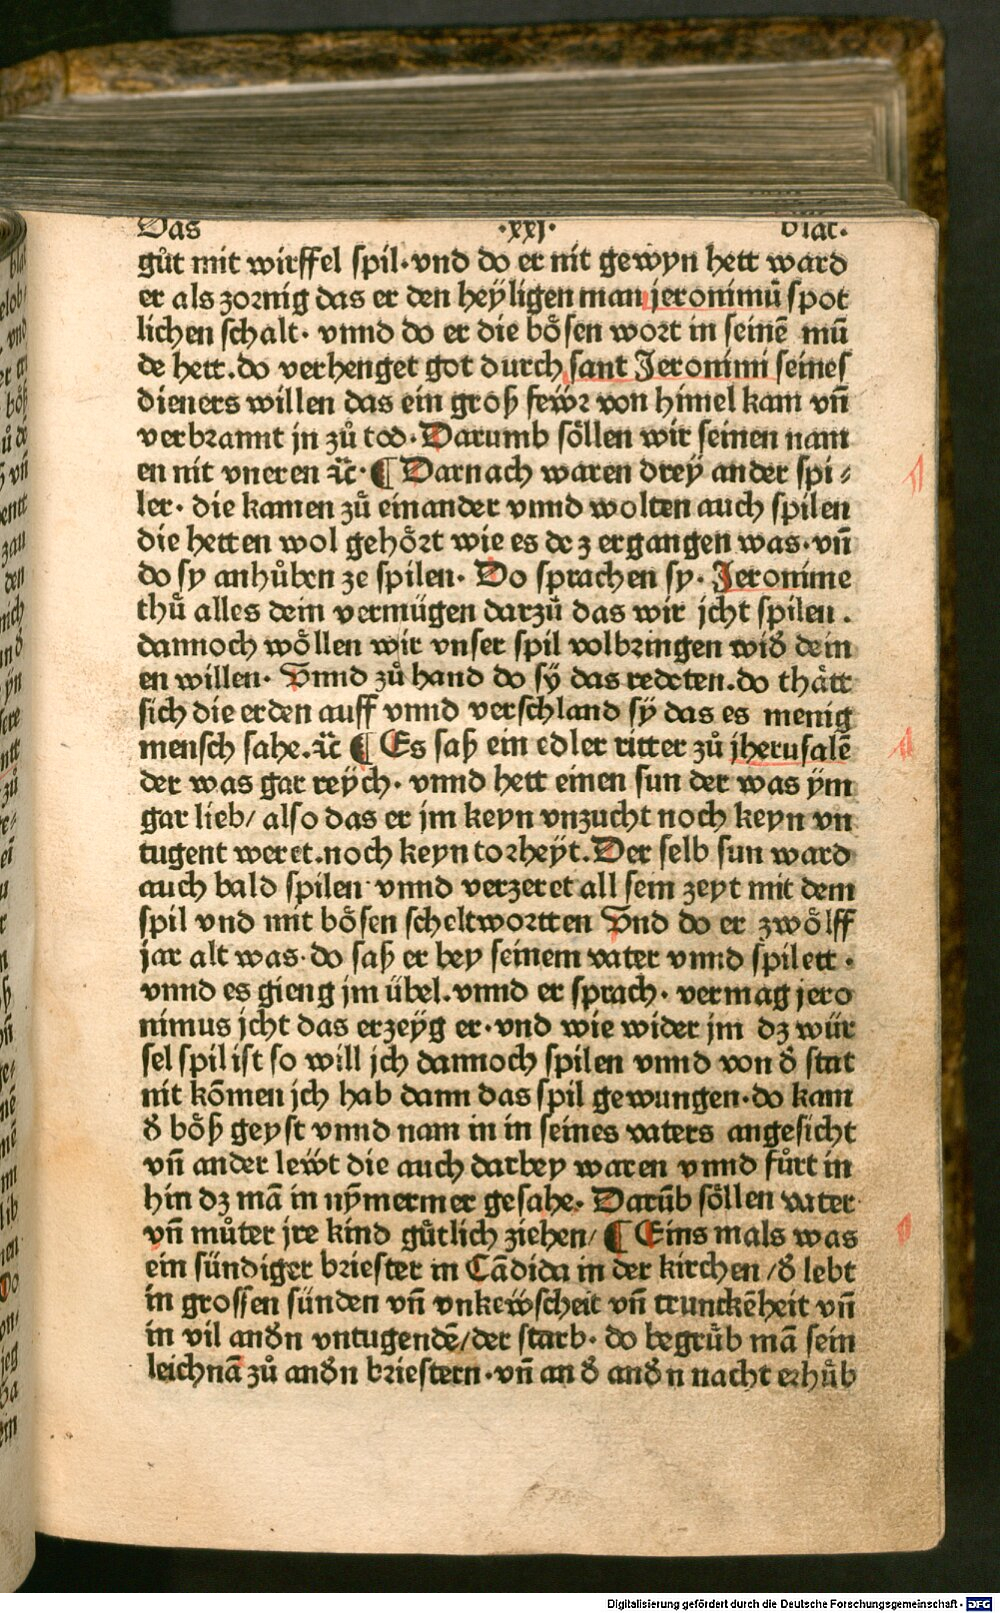 Das ·xxj· blat.
gůt mit wirffel spil·vnd do er nit gewyn hett ward
er als zornig das er den heÿligen man jeronimū spot
lichen schalt· vnnd do er die bösen wort in seinē mū
de hett.do verhenget got durch sant Jeronimi seines
dieners willen das ein groß fewr von himel kam vn̄
verbrannt jn zů tod· Darumb söllen wir seinen nam
en nit vneren ꝛc̈· ¶ Darnach waren dreÿ ander spi⸗
ler· die kamen zů einander vnnd wolten auch spilen
die hetten wol gehört wie es dez ergangen was·vn̄
do sy anhůben ze spilen· Do sprachen sy· Jeronime
thů alles dein vermügen darzů das wir jcht spilen.
dannoch wöllen wir vnser spil volbringen wid̕ dein
en willen· Vnnd zů hand do sÿ das redeten.do thätt
sich die erden auff vnnd verschland sÿ das es menig
mensch sahe.ꝛc̈ ¶ Es saß ein edler ritter zů jherusalē
der was gar reÿch· vnnd hett einen sun der was ÿm
gar lieb/ also das er jm keyn vnzucht noch keyn vn
tugent weret.noch keyn torheÿt.Der selb sun ward
auch bald spilen vnnd verzeret all sein zeyt mit dem
spil vnd mit bösen scheltwortten Vnd do er zwölff
jar alt was·do saß er bey seinem vater vnnd spilett·
vnnd es gieng jm übel.vnnd er sprach· vermag jero
nimus jcht das erzeyg er·vnd wie wider jm dz wür
fel spil ist so will jch dannoch spilen vnnd von d̕ stat
nit kōmen jch hab dann das spil gewungen·do kam
d̕ böß geyst vnnd nam in in seines vaters angesicht
vn̄ ander lewt die auch darbey waren vnnd fůrt in
hin dz mā in nȳmermer gesahe· Darūb söllen vater
vn̄ můter jre kind gůtlich ziehen/ ¶ Eins mals was
ein sündiger briester in Cādida in der kirchen/d̕ lebt
in grossen sünden vn̄ vnkewscheit vn̄ trunckēheit vn̄
in vil and̕n vntugendē/der starb· do begrůb mā sein
leichnā zů and̕n briestern·vn̄ an d̕ and̕n nacht erhůb